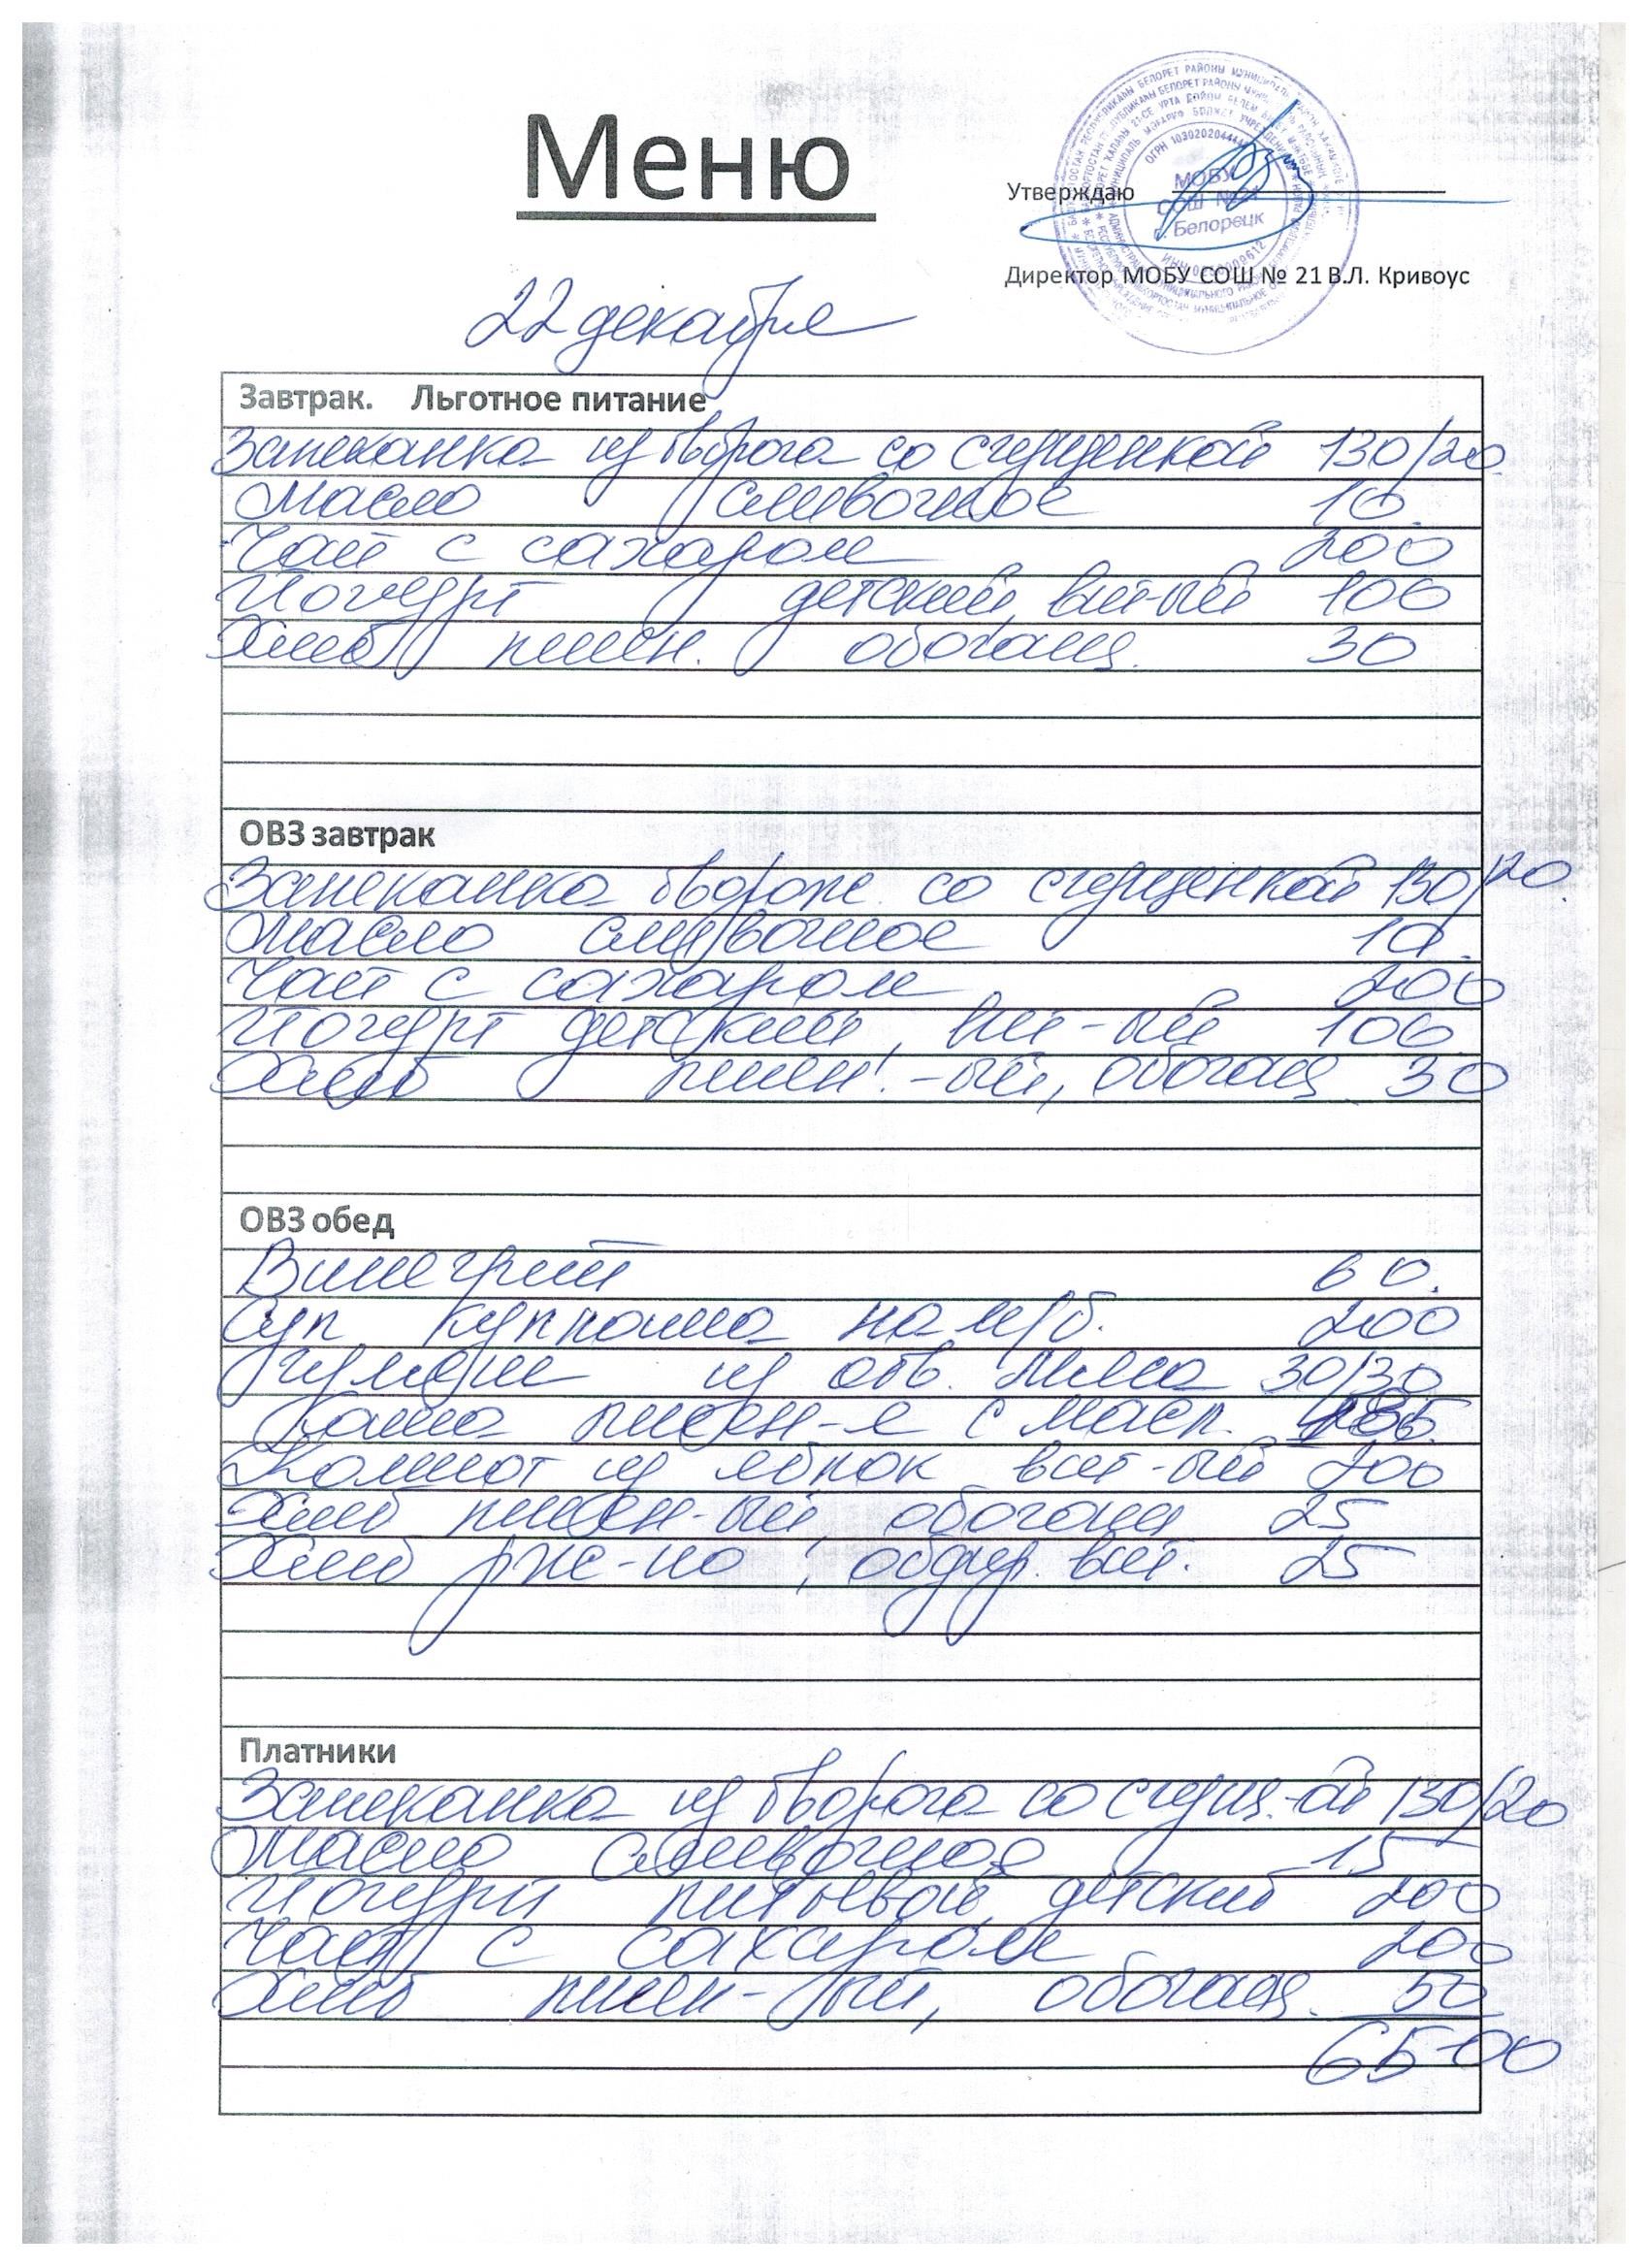 Меню
Утверждаю
МОБУ
СОШ № 21
г. Белорецк
Директор МОБУ СОШ № 21 В.Л. Кривоус
22 декабря
Завтрак. Льготное питание
Запеканка из творога со сгущенкой 130/20
Масло сливочное 10
Чай с сахаром 200
Йогурт детский, вит-ый 100
Хлеб пшен. обогащ. 30
ОВЗ завтрак
Запеканка творож. со сгущенкой 130/20
Масло сливочное 10
Чай с сахаром 200
Йогурт детский, вит-ый 100
Хлеб пшен.-ый, обогащ 30
ОВЗ обед
Винегрет 60.
Суп куллама на м/б. 200
Гуляш из отв. мяса 30/30
Каша пшен-я с масл.
Компот из яблок вит-ый 200
Хлеб пшен-ый, обогащ 25
Хлеб рже-но, обдир. вит. 25
Платники
Запеканка из творога со сгущ.-ой 130/20
Масло сливочное 15
Йогурт питьевой, детский 200
Чай с сахаром 200
Хлеб пшен-ый, обогащ. 50
65-00